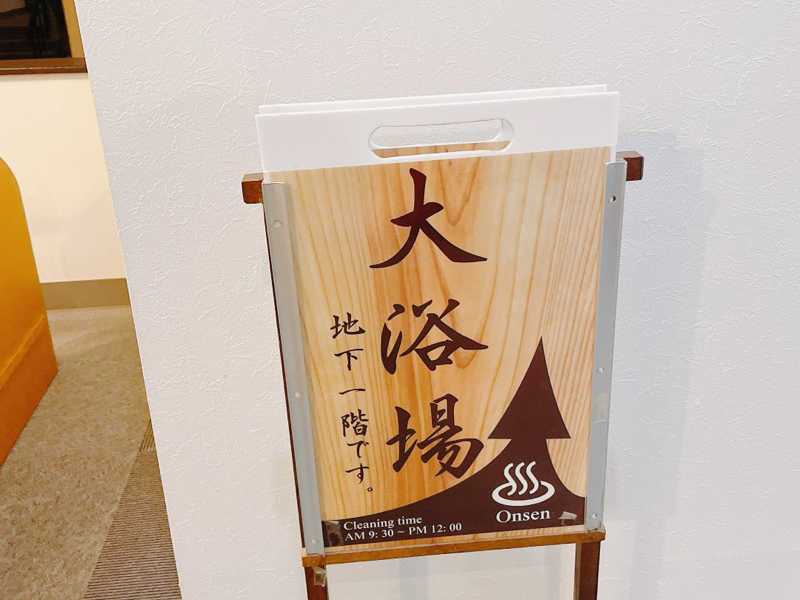 大浴場
地下一階です。
Onsen
Cleaning time
AM 9: 30 ~ PM 12: 00